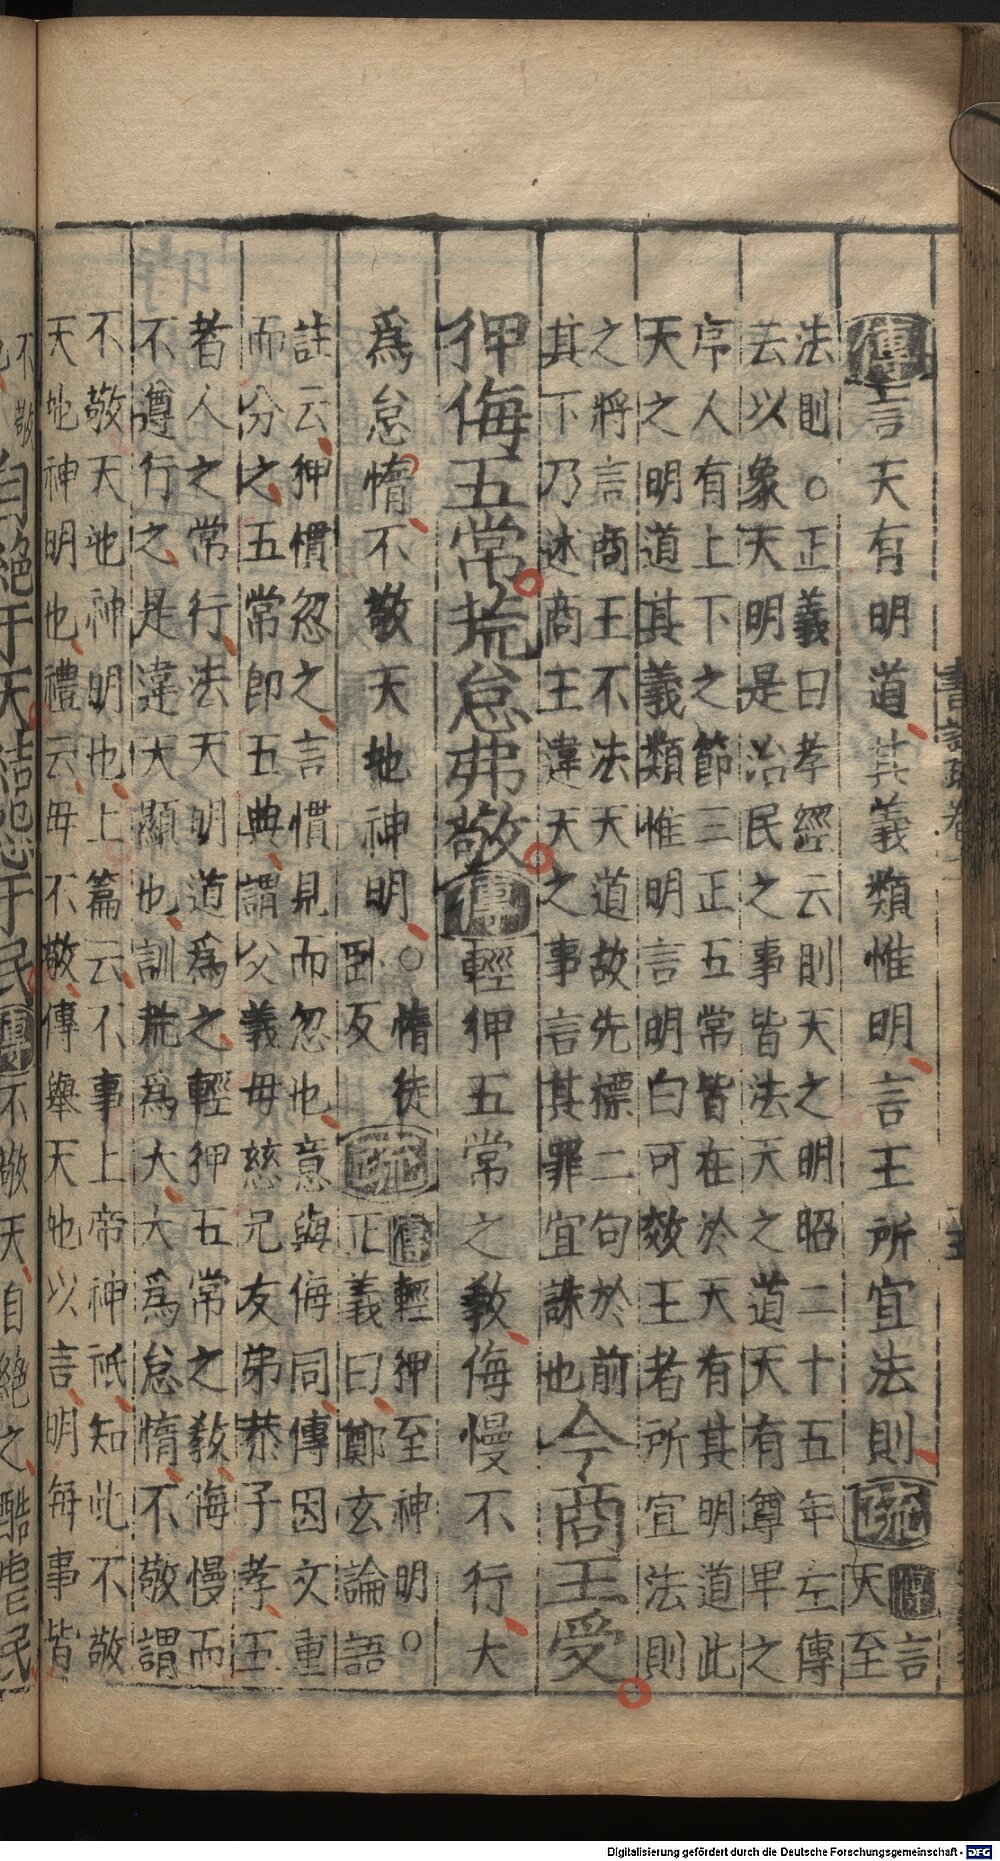 傳言天有明道其義類惟明言王所宜法則疏傳言
天至
法則○正義曰孝經云則天之明昭二十五年左傳
云以象天明是治民之事皆法天之道天有尊卑之
序人有上下之節三正五常皆在於天有其明道此
天之明道其義類惟明言明白可效王者所宜法則
之將言商王不法天道故先標二句於前
其下乃述商王違天之事言其罪宜誅也今商王受
狎侮五常荒怠弗敬傳輕狎五常之教侮慢不行大
爲怠惰不敬天地神明○惰徒
臥反疏傳輕狎至神明○
正義曰鄭玄論語
註云狎慣忽之言慣見而忽也意與侮同傳因文重
而分之五常即五典謂父義母慈兄友弟恭子孝五
者人之常行法天明道爲之輕狎五常之教侮慢而
不遵行之是違天顯也訓荒爲大大爲怠惰不敬謂
不敬天地神明也上篇云不事上帝神祇知此不敬
天地神明也禮云毋不敬傳舉天地以言明每事皆
不敬
自絕于天結怨于民傳不敬天自絕之酷虐民
書註疏卷十
Digitalisierung gefördert durch die Deutsche Forschungsgemeinschaft - DFG